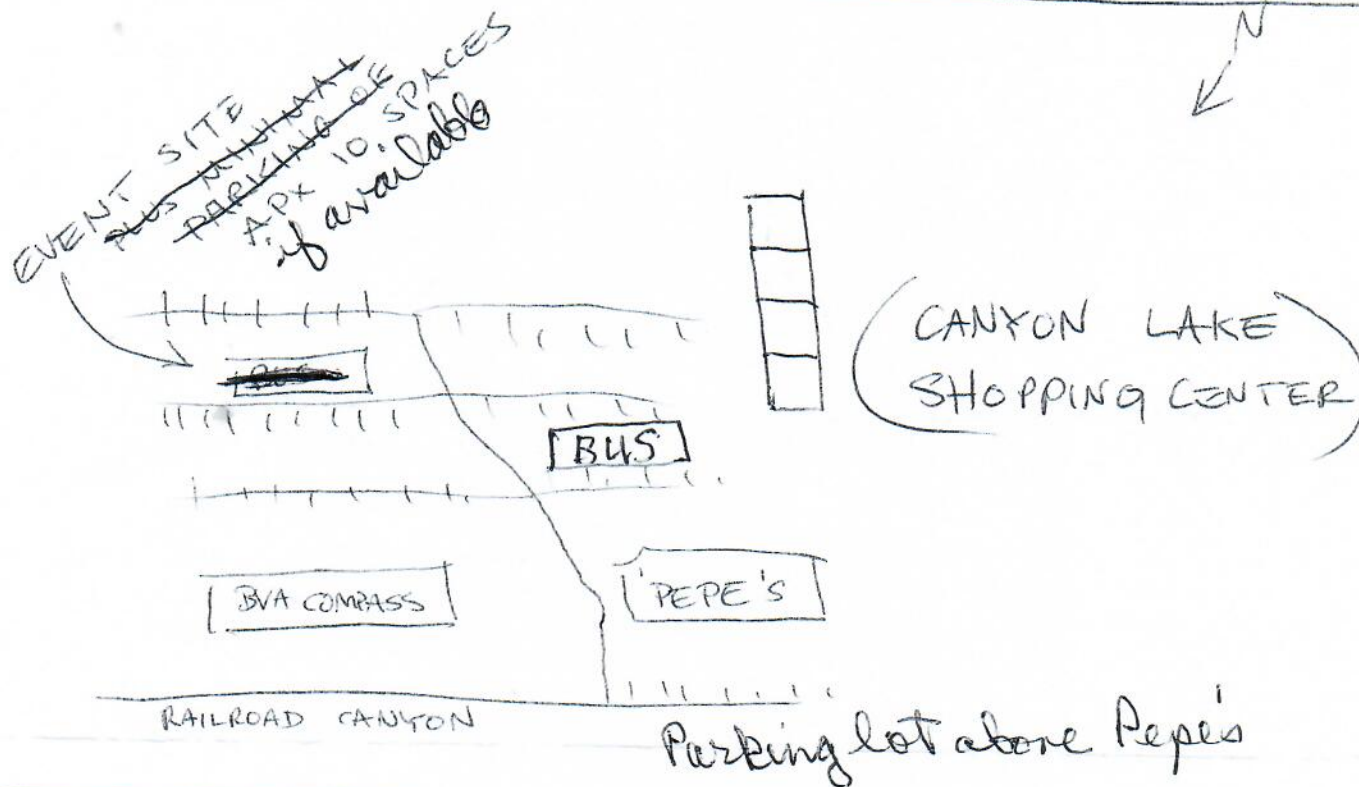 N
EVENT SITE
PLUS MINIMAL
PARKING OF
APX 10. SPACES
if available
CANYON LAKE
SHOPPING CENTER
BUS
BVA COMPASS
PEPE'S
RAILROAD CANYON
Parking lot above Pepe's